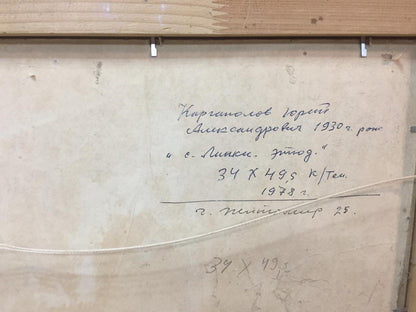 Каргаполов Юрий
Александрович 1930 г. рож
"с. Линки. Этюд."
34 X 49,5 К/Тем.
1978 г.
г. Житомир 25.
34 X 49,5